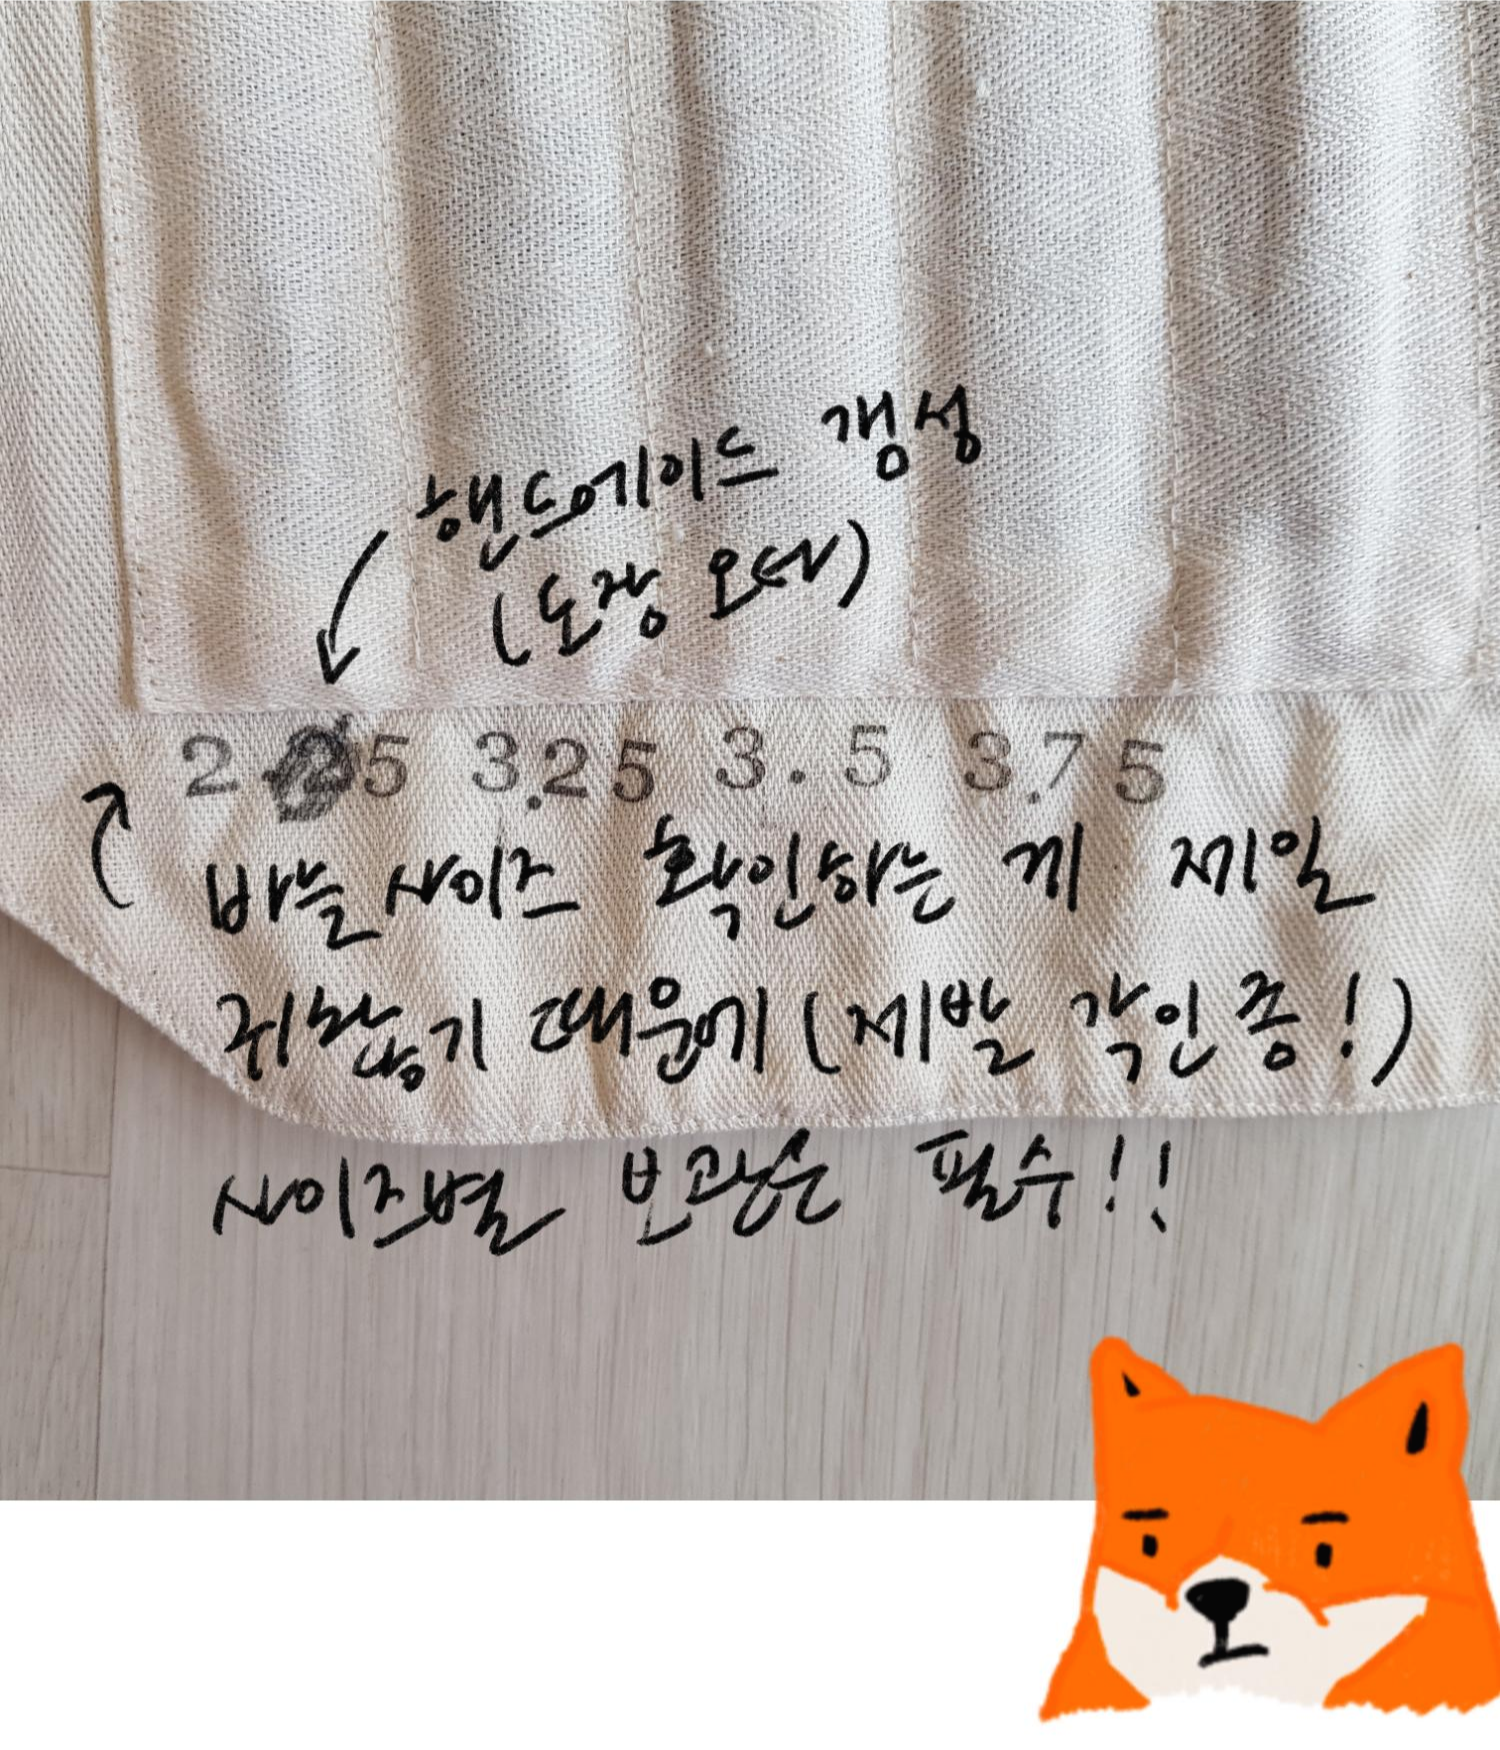 핸드메이드 갬성
(도장 오타)
2.25 3.25 3.5 3.75
바늘 사이즈 확인하는 게 제일
귀찮기 때문에 (제발 각인 좀!)
사이즈별 보관은 필수!!